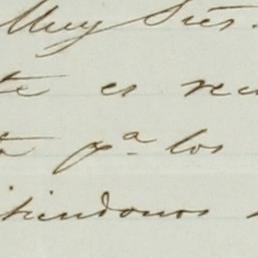 Muy Sres.
te es rec
ta pª los
tiendonos